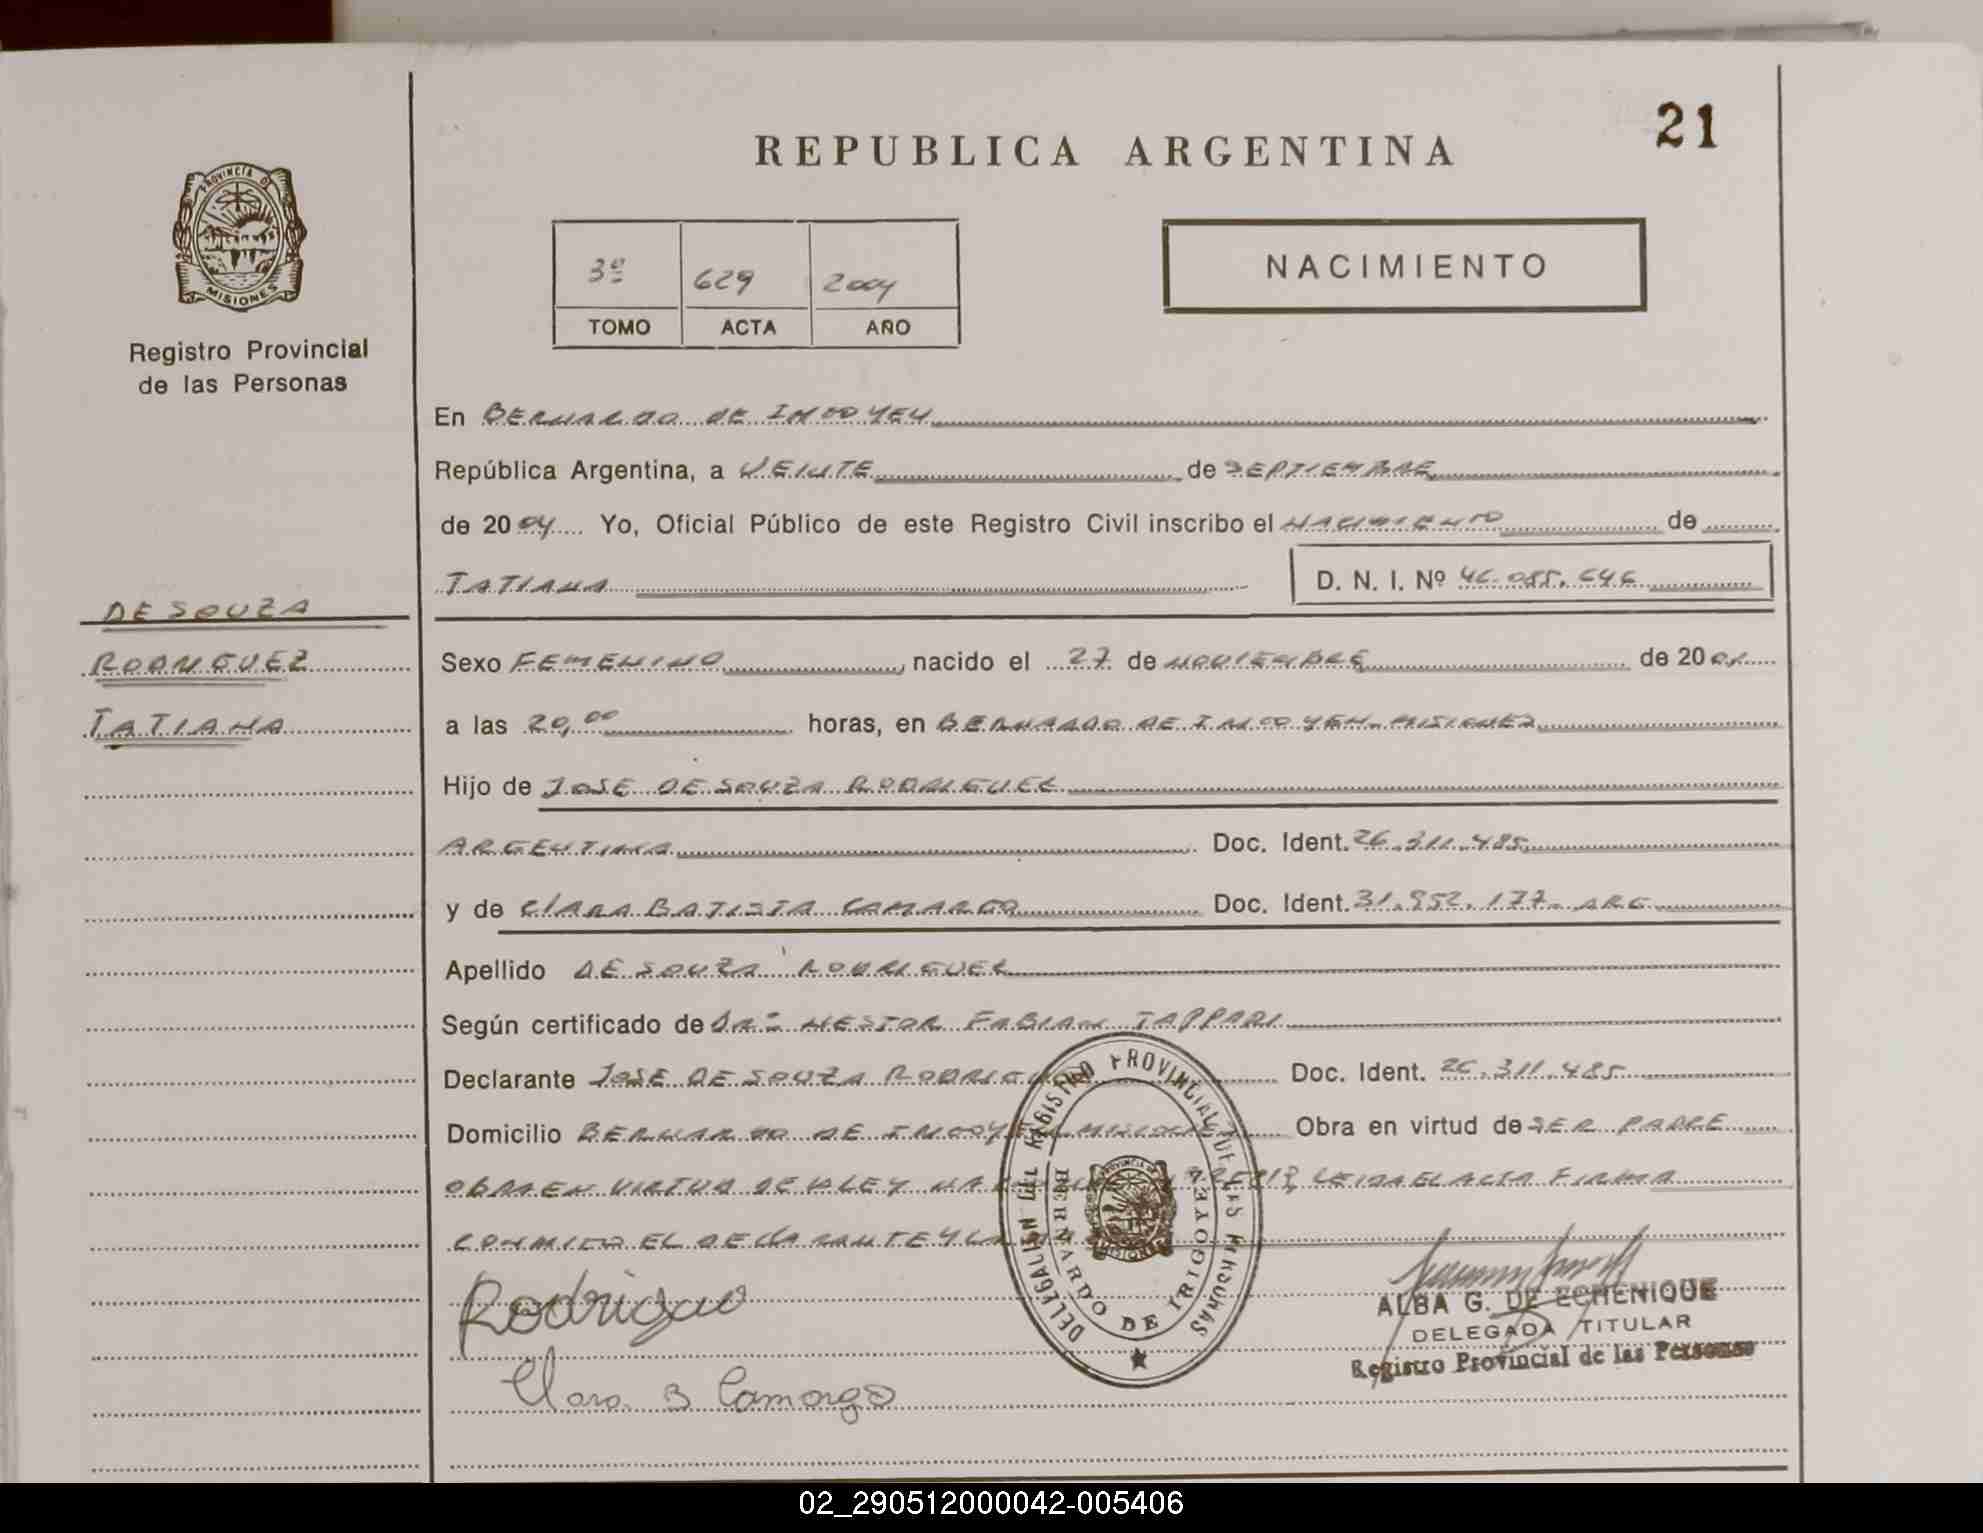 21
REPUBLICA ARGENTINA
PROVINCIA DE
MISIONES
Registro Provincial
de las Personas
3º 629 2004
TOMO ACTA AÑO
NACIMIENTO
En BERNARDO DE IRIGOYEN
República Argentina, a VEINTE de SEPTIEMBRE
de 2004 Yo, Oficial Público de este Registro Civil inscribo el NACIMIENTO de
TATIANA D. N. I. Nº 46.085.646
DE SOUZA
RODRIGUEZ
TATIANA
Sexo FEMENINO, nacido el 27 de NOVIEMBRE de 20
a las 20,00 horas, en BERNARDO DE IRIGOYEN - MISIONES
Hijo de JOSE DE SOUZA RODRIGUEZ
ARGENTINA Doc. Ident. 26.311.485
y de CLARA BATISTA CAMARGO Doc. Ident. 31.952.177 - ARG
Apellido DE SOUZA RODRIGUEZ
Según certificado de DR. NESTOR FABIAN TAPPARI
Declarante JOSE DE SOUZA RODRIGUEZ Doc. Ident. 26.311.485
Domicilio BERNARDO DE IRIGOYEN MISIONES Obra en virtud de SER PADRE
OBRA EN VIRTUD DE LA LEY LEIDA EL ACTA FIRMA
CONMIGO EL DECLARANTE Y LA
DELEGACIÓN DEL REGISTRO PROVINCIAL DE LAS PERSONAS
BERNARDO DE IRIGOYEN
PROVINCIA DE
MISIONES
Rodriguo
Clara B Camargo
ALBA G. DE ECHENIQUE
DELEGADA TITULAR
Registro Provincial de las Personas
02_290512000042-005406